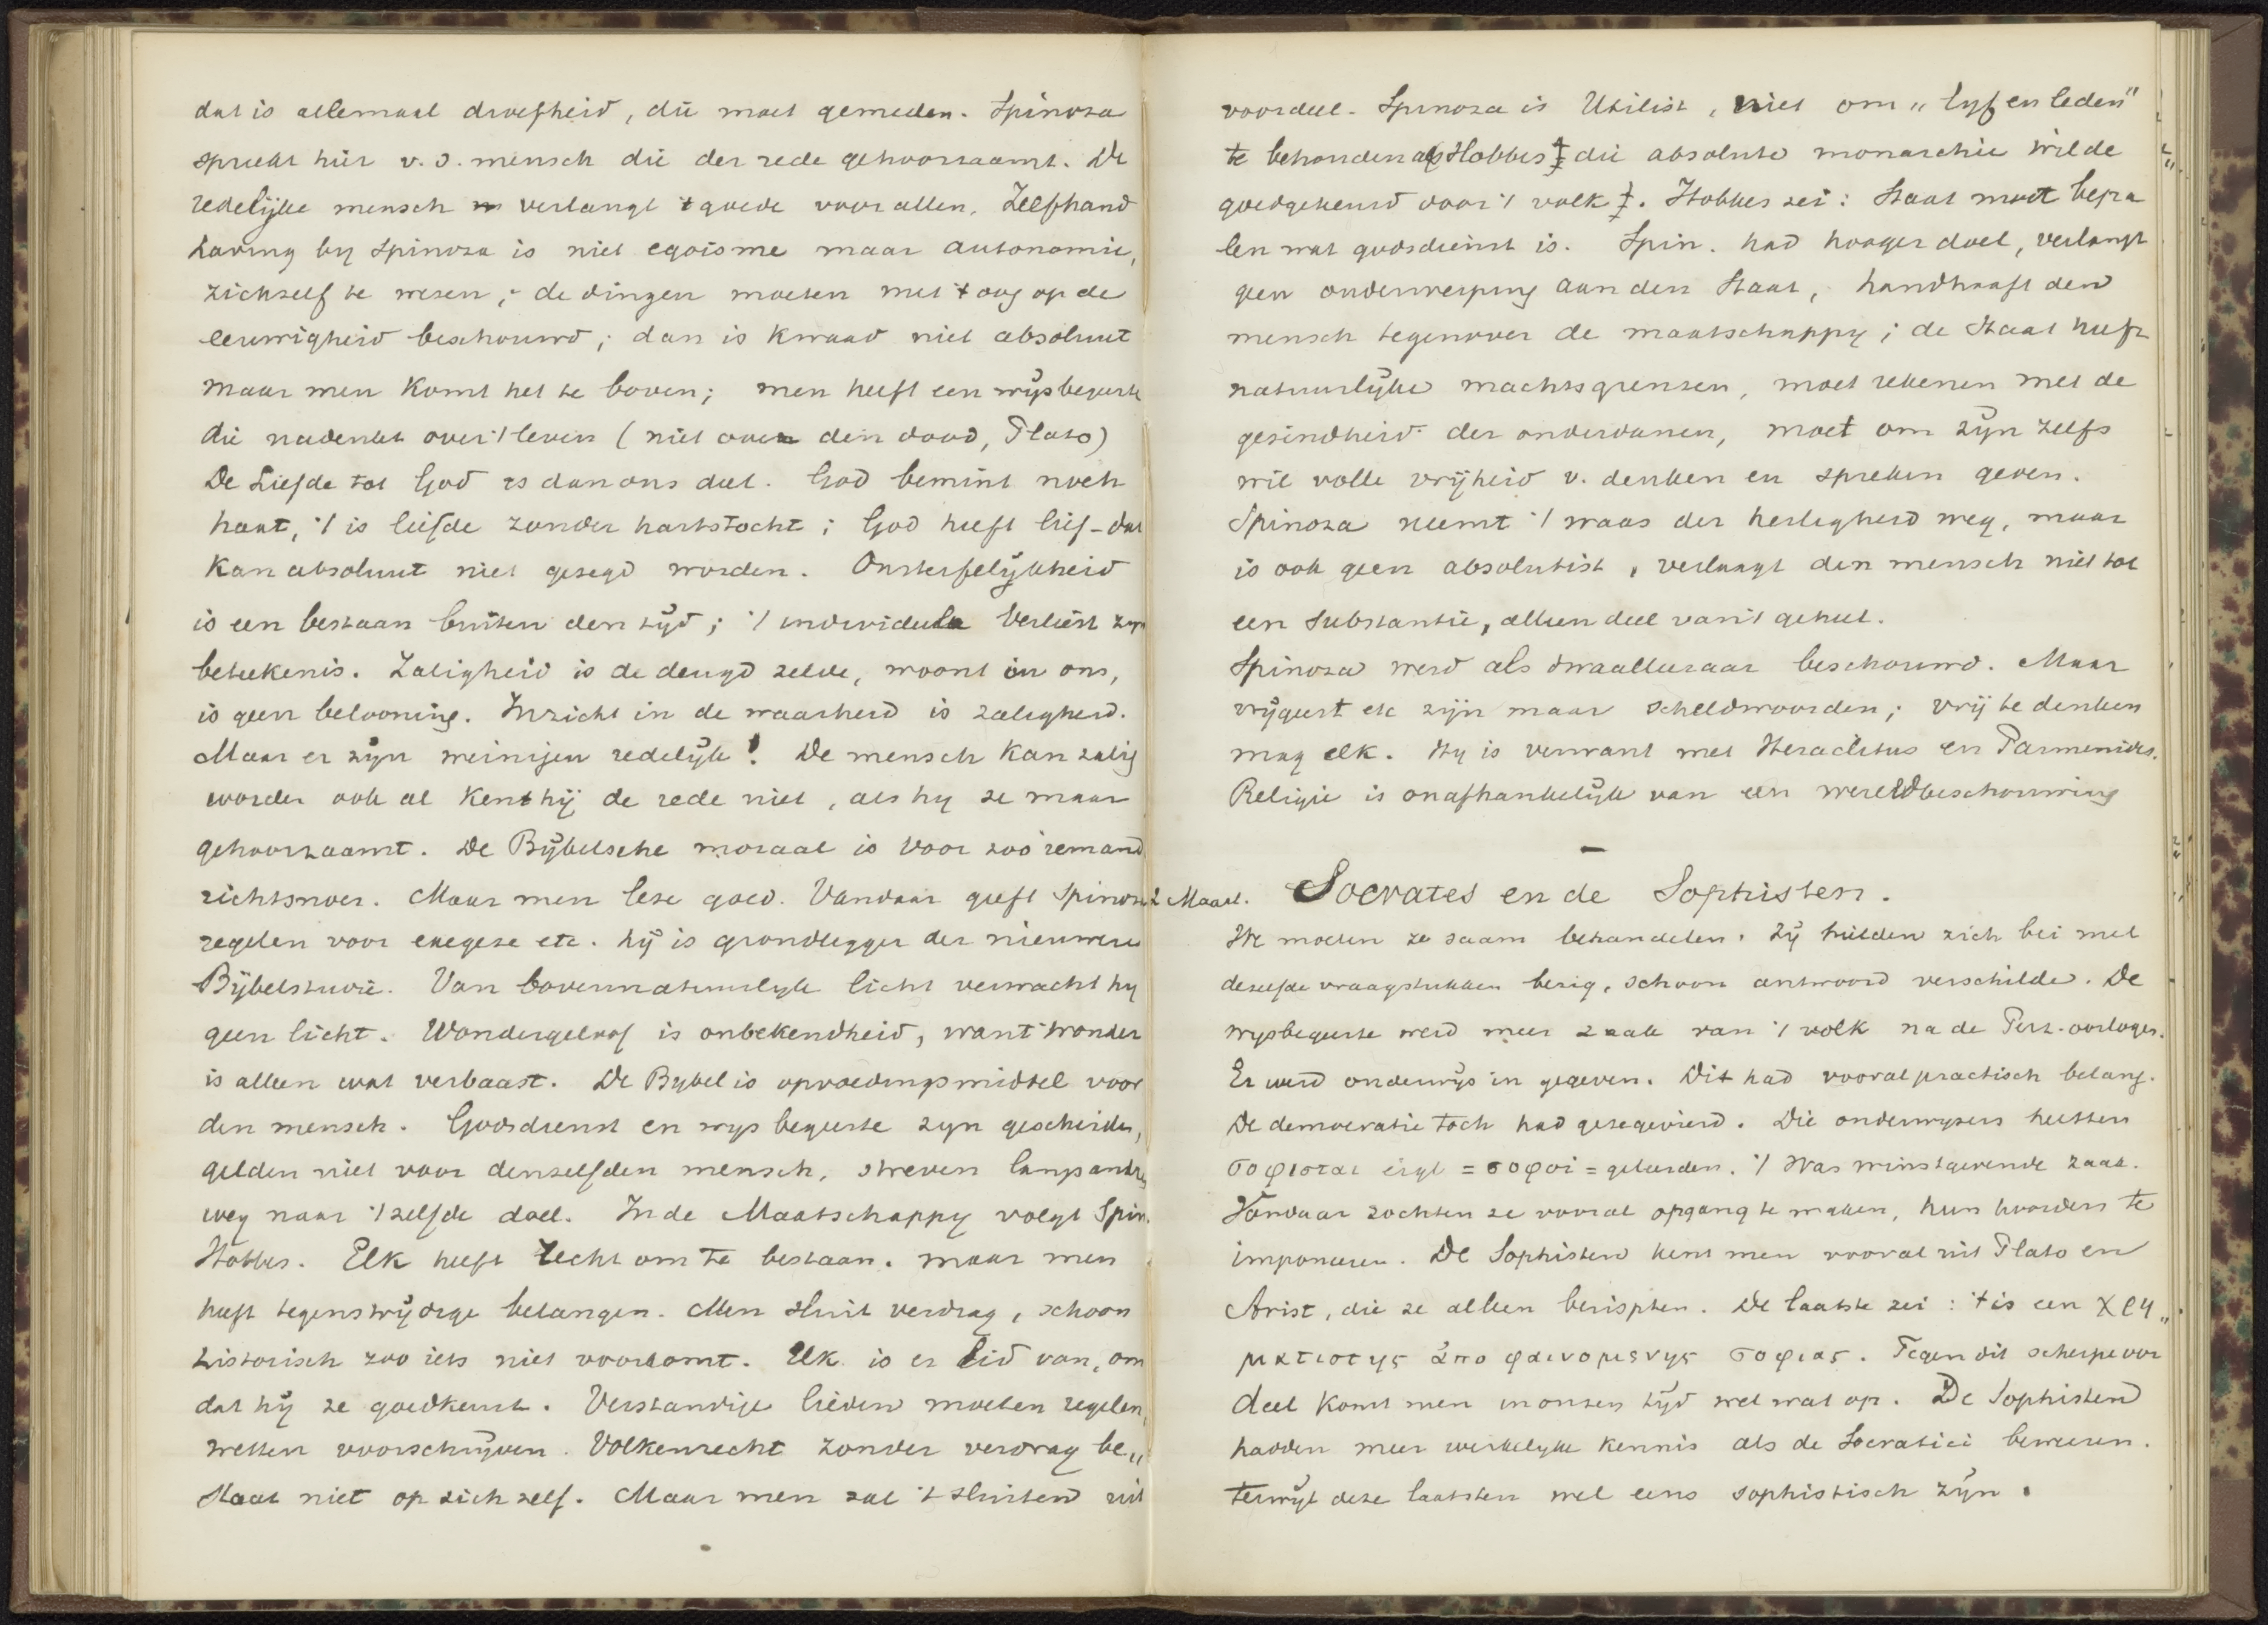 dat is allemaal droefheid, die moet gemeden. Spinoza
spreekt hier v. d. mensch die der rede gehoorzaamt. De
redelijke mensch verlangt 't goede voor allen. Zelfhand
having by Spinoza is niet egoisme maar autonomie,
zichzelf te wezen; de dingen moeten met 't oog op de
eeuwigheid beschouwd; dan is kwaad niet absoluut
maar men komt het te boven; men heeft een wijsbegeerte
die nadenkt over 't leven (niet over den dood, Plato)
De Liefde tot God is dan ons deel. God bemint noch
haat, 't is liefde zonder hartstocht; God heeft lief - dat
kan absoluut niet gezegd worden. Onsterfelijkheid
is een bestaan buiten den tijd; 't individuele verliest zijn
beteekenis. Zaligheid is de deugd zelve, woont in ons,
is geen belooning. Inzicht in de waarheid is zaligheid.
Maar er zijn weinigen redelijk! De mensch kan zalig
worden ook al kent hij de rede niet, als hy ze maar
gehoorzaamt. De Bijbelsche moraal is voor zoo iemand
richtsnoer. Maar men leze goed. Vandaar geeft Spinoza
regelen voor exegese etc. hij is grondlegger der nieuwere
Bijbelstudie. Van bovennatuurlyk licht verwacht hy
geen licht. Wondergeloof is onbekendheid, want wonder
is alleen wat verbaast. De Bybel is opvoedingsmiddel voor
den mensch. Godsdienst en wysbegeerte zyn gescheiden,
gelden niet voor denzelfden mensch, streven langs andren
weg naar 't zelfde doel. In de Maatschappy volgt Spin.
Hobbes. Elk heeft recht om te bestaan. maar men
heeft tegenstrijdige belangen. Men sluit verdrag, schoon
historisch zoo iets niet voorkomt. Elk is er lid van, om
dat hij ze goedkeurt. Verstandige lieden moeten regelen,
wetten voorschrijven. Volkenrecht zonder verdrag be„
staat niet op zich zelf. Maar men zal 't sluiten uit
voordeel. Spinoza is Utilist, niet om „lyf en leden"
te behouden als Hobbes die absolute monarchie wilde
goedgekeurd door 't volk. Hobbes zei: Staat moet bepa
len wat godsdienst is. Spin. had hooger doel, verlangt
geen onderwerping aan den Staat, handhaaft den
mensch tegenover de maatschappy; de Staat heeft
natuurlijke machtsgrenzen, moet rekenen met de
gezindheid der onderdanen, moet om zijn zelfs
wil volle vrijheid v. denken en spreken geven.
Spinoza neemt 't waas der heiligheid weg, maar
is ook geen absolutist, verlaagt den mensch niet tot
een substantie, alleen deel van 't geheel.
Spinoza werd als dwaalleeraar beschouwd. Maar
vrijgeest etc zijn maar scheldwoorden; vrij te denken
mag elk. Hy is verwant met Heraclitus en Parmenides.
Religie is onafhankelijk van een wereldbeschouwing
2 Maart. Socrates en de Sophisten.
We moeten ze saam behandelen. Zij hielden zich bei met
dezelfde vraagstukken bezig, schoon antwoord verschilde. De
wysbegeerte werd meer zaak van 't volk na de Perz. oorlogen.
Er werd onderwijs in gegeven. Dit had vooral practisch belang.
De democratie toch had gezegevierd. Die onderwyzers heetten
σοφισται eigl = σοφοι = geleerden. 't Was winstgevende zaak.
Vandaar zochten ze vooral opgang te maken, hun hoorders te
imponeeren. De Sophisten kent men vooral uit Plato en
Arist, die ze alleen berispten. De laatste zei: 't is een χρη„
ματιστης ἀπο φαινομενης σοφιας. Tegen dit scherpe oor
deel komt men in onzen tijd wel wat op. De Sophisten
hadden meer werkelyke kennis als de Socratici beweren.
terwijl deze laatsten wel eens sophistisch zijn.